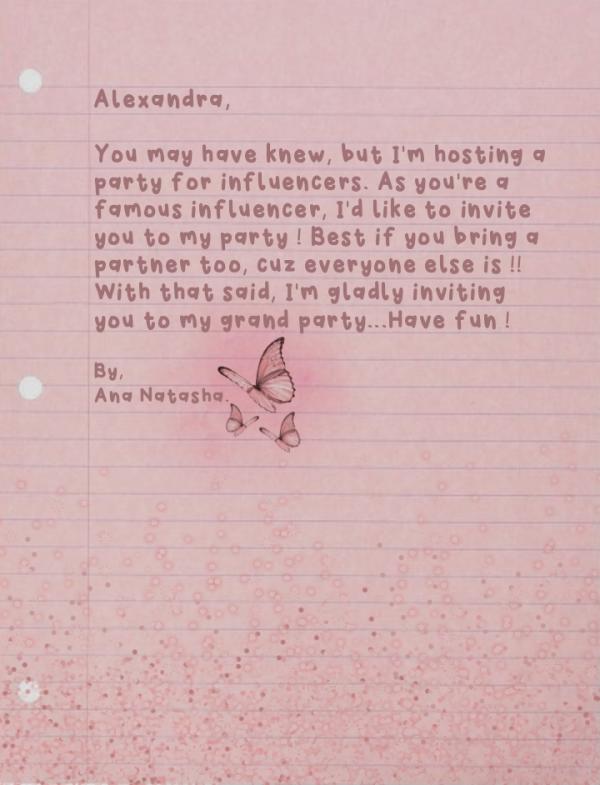 Alexandra,
You may have knew, but I'm hosting a
party for influencers. As you're a
famous influencer, I'd like to invite
you to my party ! Best if you bring a
partner too, cuz everyone else is !!
With that said, I'm gladly inviting
you to my grand party...Have fun !
By,
Ana Natasha.